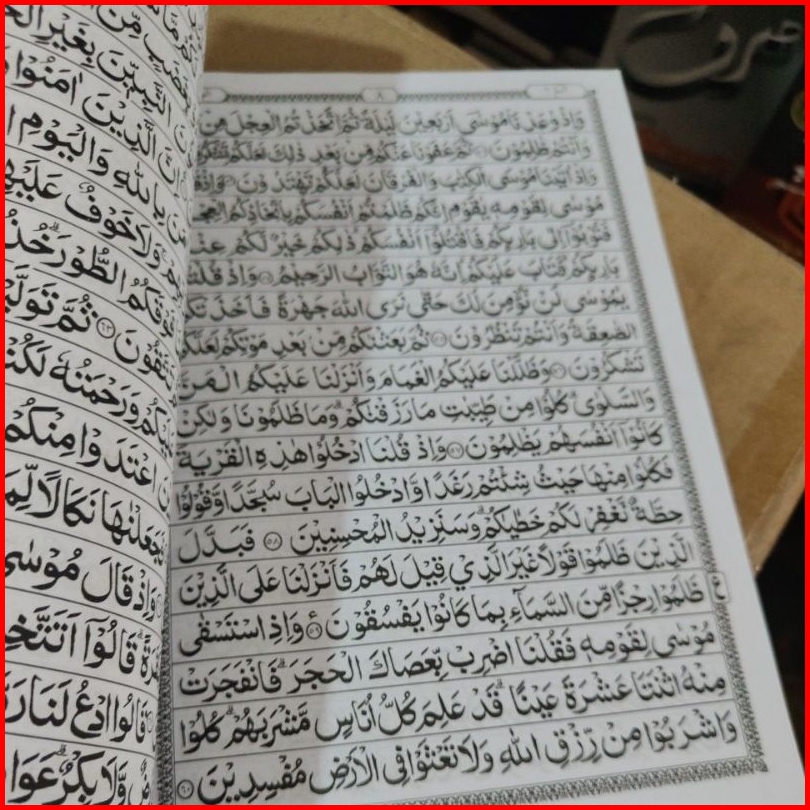 ٨
وَاِذْ وٰعَدْنَا مُوْسٰٓى اَرْبَعِيْنَ لَيْلَةً ثُمَّ اتَّخَذْتُمُ الْعِجْلَ مِنْ
وَاَنْتُمْ ظٰلِمُوْنَ ۝٥١ ثُمَّ عَفَوْنَا عَنْكُمْ مِنْ بَعْدِ ذٰلِكَ لَعَلَّكُمْ
وَاِذْ اٰتَيْنَا مُوْسَى الْكِتٰبَ وَالْفُرْقَانَ لَعَلَّكُمْ تَهْتَدُوْنَ ۝٥٣ وَاِذْ
مُوْسٰى لِقَوْمِهٖ يٰقَوْمِ اِنَّكُمْ ظَلَمْتُمْ اَنْفُسَكُمْ بِاتِّخَاذِكُمُ
فَتُوْبُوْٓا اِلٰى بَارِئِكُمْ فَاقْتُلُوْٓا اَنْفُسَكُمْ ذٰلِكُمْ خَيْرٌ لَّكُمْ عِنْدَ
بَارِئِكُمْ فَتَابَ عَلَيْكُمْ اِنَّهٗ هُوَ التَّوَّابُ الرَّحِيْمُ ۝٥٤ وَاِذْ قُلْتُمْ
يٰمُوْسٰى لَنْ نُّؤْمِنَ لَكَ حَتّٰى نَرَى اللّٰهَ جَهْرَةً فَاَخَذَتْكُمُ
الصّٰعِقَةُ وَاَنْتُمْ تَنْظُرُوْنَ ۝٥٥ ثُمَّ بَعَثْنٰكُمْ مِنْ بَعْدِ مَوْتِكُمْ لَعَلَّكُمْ
تَشْكُرُوْنَ ۝٥٦ وَظَلَّلْنَا عَلَيْكُمُ الْغَمَامَ وَاَنْزَلْنَا عَلَيْكُمُ الْمَنَّ
وَالسَّلْوٰى كُلُوْا مِنْ طَيِّبٰتِ مَا رَزَقْنٰكُمْ وَمَا ظَلَمُوْنَا وَلٰكِنْ
كَانُوْٓا اَنْفُسَهُمْ يَظْلِمُوْنَ ۝٥٧ وَاِذْ قُلْنَا ادْخُلُوْا هٰذِهِ الْقَرْيَةَ
فَكُلُوْا مِنْهَا حَيْثُ شِئْتُمْ رَغَدًا وَّادْخُلُوا الْبَابَ سُجَّدًا وَّقُوْلُوْا
حِطَّةٌ نَّغْفِرْ لَكُمْ خَطٰيٰكُمْ وَسَنَزِيْدُ الْمُحْسِنِيْنَ ۝٥٨ فَبَدَّلَ
الَّذِيْنَ ظَلَمُوْا قَوْلًا غَيْرَ الَّذِيْ قِيْلَ لَهُمْ فَاَنْزَلْنَا عَلَى الَّذِيْنَ
ظَلَمُوْا رِجْزًا مِّنَ السَّمَآءِ بِمَا كَانُوْا يَفْسُقُوْنَ ۝٥٩ وَاِذِ اسْتَسْقٰى
مُوْسٰى لِقَوْمِهٖ فَقُلْنَا اضْرِبْ بِّعَصَاكَ الْحَجَرَ فَانْفَجَرَتْ
مِنْهُ اثْنَتَا عَشْرَةَ عَيْنًا قَدْ عَلِمَ كُلُّ اُنَاسٍ مَّشْرَبَهُمْ كُلُوْا
وَاشْرَبُوْا مِنْ رِّزْقِ اللّٰهِ وَلَا تَعْثَوْا فِى الْاَرْضِ مُفْسِدِيْنَ ۝٦٠
النَّبِيّٖنَ بِغَيْرِ
الَّذِيْنَ اٰمَنُوْا
بِاللّٰهِ وَالْيَوْمِ
وَلَا خَوْفٌ عَلَيْهِمْ
فَوْقَكُمُ الطُّوْرَ خُذُوْا
تَتَّقُوْنَ ۝٦٣ ثُمَّ تَوَلَّيْتُمْ
عَلَيْكُمْ وَرَحْمَتُهٗ لَكُنْتُمْ
اعْتَدَوْا مِنْكُمْ
فَجَعَلْنٰهَا نَكَالًا لِّمَا
وَاِذْ قَالَ مُوْسٰى
قَالُوْٓا اَتَتَّخِذُنَا
قَالُوا ادْعُ لَنَا رَبَّكَ
وَّلَا بِكْرٌ عَوَانٌ